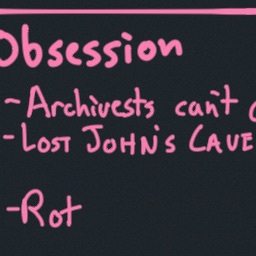 Obsession
- Archivests can't
- LOST JOHN'S CAVE
- Rot